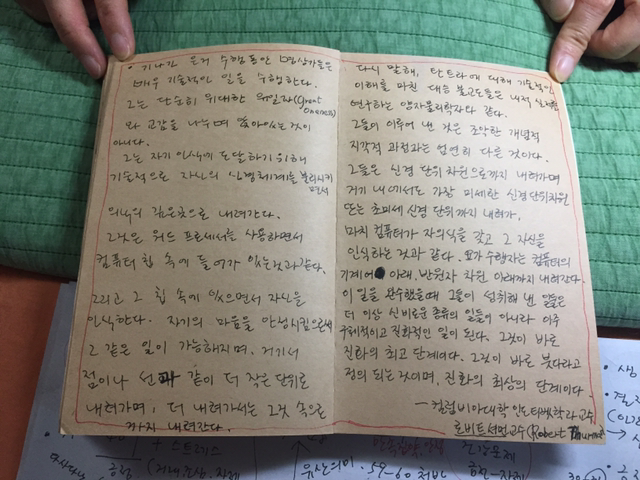 · 지나간 은거 수행동안 명상가들은
매우 기술적인 일을 수행한다.
그는 단순히 위대한 유일자(Great
oneness)
와 교감을 나누며 앉아있는것이
아니다.
그는 자기 인식에 도달하기 위해
기술적으로 자신의 신경체계를 분리시키
면서
의식의 깊은곳으로 내려간다.
그것은 워드 프로세서를 사용하면서
컴퓨터 칩 속에 들어가 있는것과 같다.
그리고 그 칩 속에 있으면서 자신을
인식한다. 자기의 마음을 안정시킴으로써
그 같은 일이 가능해지며, 거기서
점이나 선과 같이 더 작은 단위로
내려가며, 더 내려가서는 그것 속으로
까지 내려간다.
다시 말해, 탄트라에 대해 기술적인
이해를 마친 대승 불교도들은 내적 실재를
연구하는 양자물리학자와 같다.
그들이 이루어 낸 것은 조악한 개념적
지각적 과정과는 엄연히 다른 것이다.
그들은 신경 단위 차원으로까지 내려가며
거기 내에서도 가장 미세한 신경단위차원
또는 초미세 신경 단위까지 내려가,
마치 컴퓨터가 자의식을 갖고 그 자신을
인식하는것과 같다. 요가수행자는 컴퓨터의
기계어 아래, 반원자 차원 아래까지 내려간다.
이 일을 완수했을때 그들이 성취해 낸 일들은
더 이상 신비로운 종류의 일들이 아니라 아주
구체적이고 진화적인 일이 된다. 그것이 바로
진화의 최고 단계이다. 그것이 바로 붓다라고
정의 되는것이며, 진화의 최상의 단계이다
— 컬럼비아대학 인도티벳학과 교수,
로버트 서먼교수 (Robert Thurman)
+ 스트레스
긍정
유산의이 · 59-60 처방
건강문제
· 생